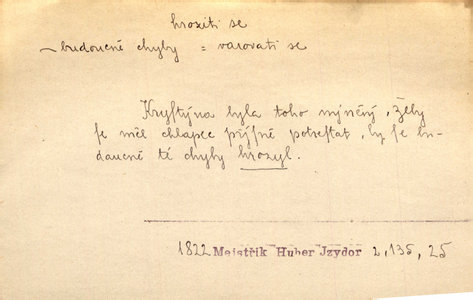 hroziti se
~ budoucně chyby = varovati se
Kryſtýna byla toho mjněnj, žeby
ſe měl chlapec přjſně potreſtat, by ſe bu-
daucně té chyby hrozyl.
1822 Mejstřik Huber Jzydor 2, 135, 25